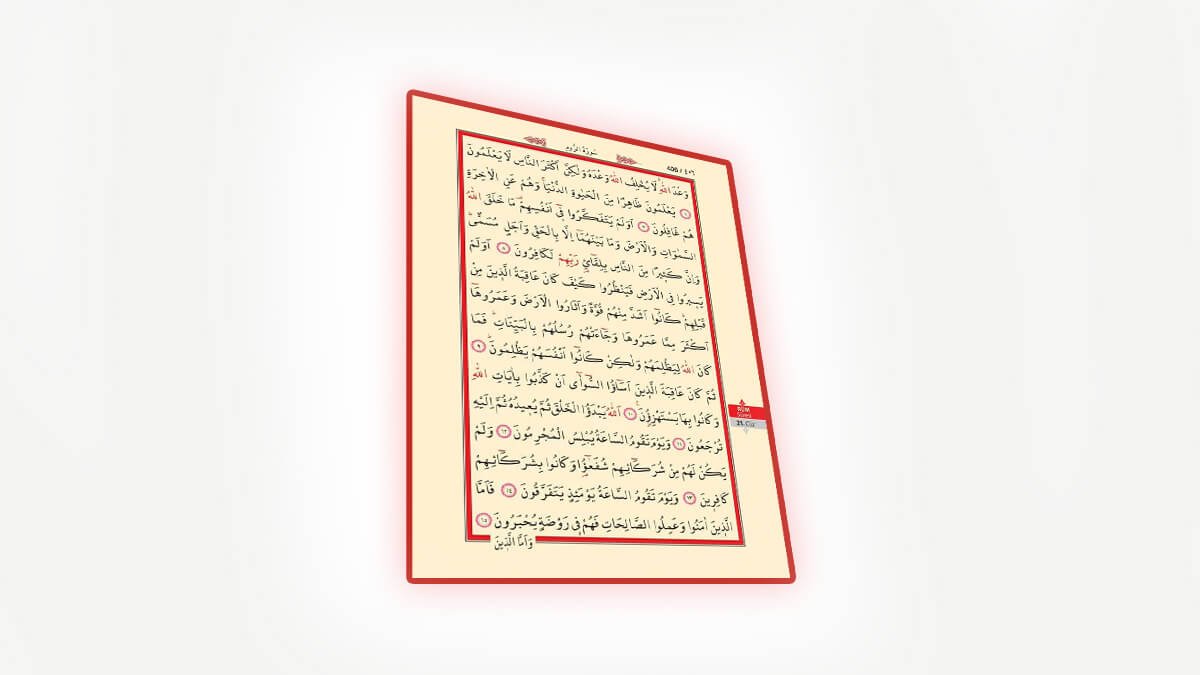 سُورَةُ الرُّومِ
٤٠٦ / 405
وَعْدَ اللّٰهِۜ لَا يُخْلِفُ اللّٰهُ وَعْدَهُ وَلٰكِنَّ اَكْثَرَ النَّاسِ لَا يَعْلَمُونَ
﴿٦﴾ يَعْلَمُونَ ظَاهِرًا مِنَ الْحَيٰوةِ الدُّنْيَاۚ وَهُمْ عَنِ الْاٰخِرَةِ
هُمْ غَافِلُونَ ﴿٧﴾ اَوَلَمْ يَتَفَكَّرُوا فٖٓي اَنْفُسِهِمْ۠ مَا خَلَقَ اللّٰهُ
السَّمٰوَاتِ وَالْاَرْضَ وَمَا بَيْنَهُمَٓا اِلَّا بِالْحَقِّ وَاَجَلٍ مُسَمًّىۜ
وَاِنَّ كَثٖيرًا مِنَ النَّاسِ بِلِقَٓائِ رَبِّهِمْ لَكَافِرُونَ ﴿٨﴾ اَوَلَمْ
يَسٖيرُوا فِي الْاَرْضِ فَيَنْظُرُوا كَيْفَ كَانَ عَاقِبَةُ الَّذٖينَ مِنْ
قَبْلِهِمْۜ كَانُٓوا اَشَدَّ مِنْهُمْ قُوَّةً وَاَثَارُوا الْاَرْضَ وَعَمَرُوهَٓا
اَكْثَرَ مِمَّا عَمَرُوهَا وَجَٓاءَتْهُمْ رُسُلُهُمْ بِالْبَيِّنَاتِۜ فَمَا
كَانَ اللّٰهُ لِيَظْلِمَهُمْ وَلٰكِنْ كَانُٓوا اَنْفُسَهُمْ يَظْلِمُونَۜ ﴿٩﴾
ثُمَّ كَانَ عَاقِبَةَ الَّذٖينَ اَسَٓاؤُ۫ا السُّٓوآٰى اَنْ كَذَّبُوا بِاٰيَاتِ اللّٰهِ
وَكَانُوا بِهَا يَسْتَهْزِؤُ۫نَ۟ ﴿١٠﴾ اَللّٰهُ يَبْدَؤُا الْخَلْقَ ثُمَّ يُعٖيدُهُ ثُمَّ اِلَيْهِ
تُرْجَعُونَ ﴿١١﴾ وَيَوْمَ تَقُومُ السَّاعَةُ يُبْلِسُ الْمُجْرِمُونَ ﴿١٢﴾ وَلَمْ
يَكُنْ لَهُمْ مِنْ شُرَكَٓائِهِمْ شُفَعٰٓؤُ۬ا وَكَانُوا بِشُرَكَٓائِهِمْ
كَافِرٖينَ ﴿١٣﴾ وَيَوْمَ تَقُومُ السَّاعَةُ يَوْمَئِذٍ يَتَفَرَّقُونَ ﴿١٤﴾ فَاَمَّا
الَّذٖينَ اٰمَنُوا وَعَمِلُوا الصَّالِحَاتِ فَهُمْ فٖي رَوْضَةٍ يُحْبَرُونَ ﴿١٥﴾
وَاَمَّا الَّذٖينَ
RÛM
Sûresi
21. Cüz